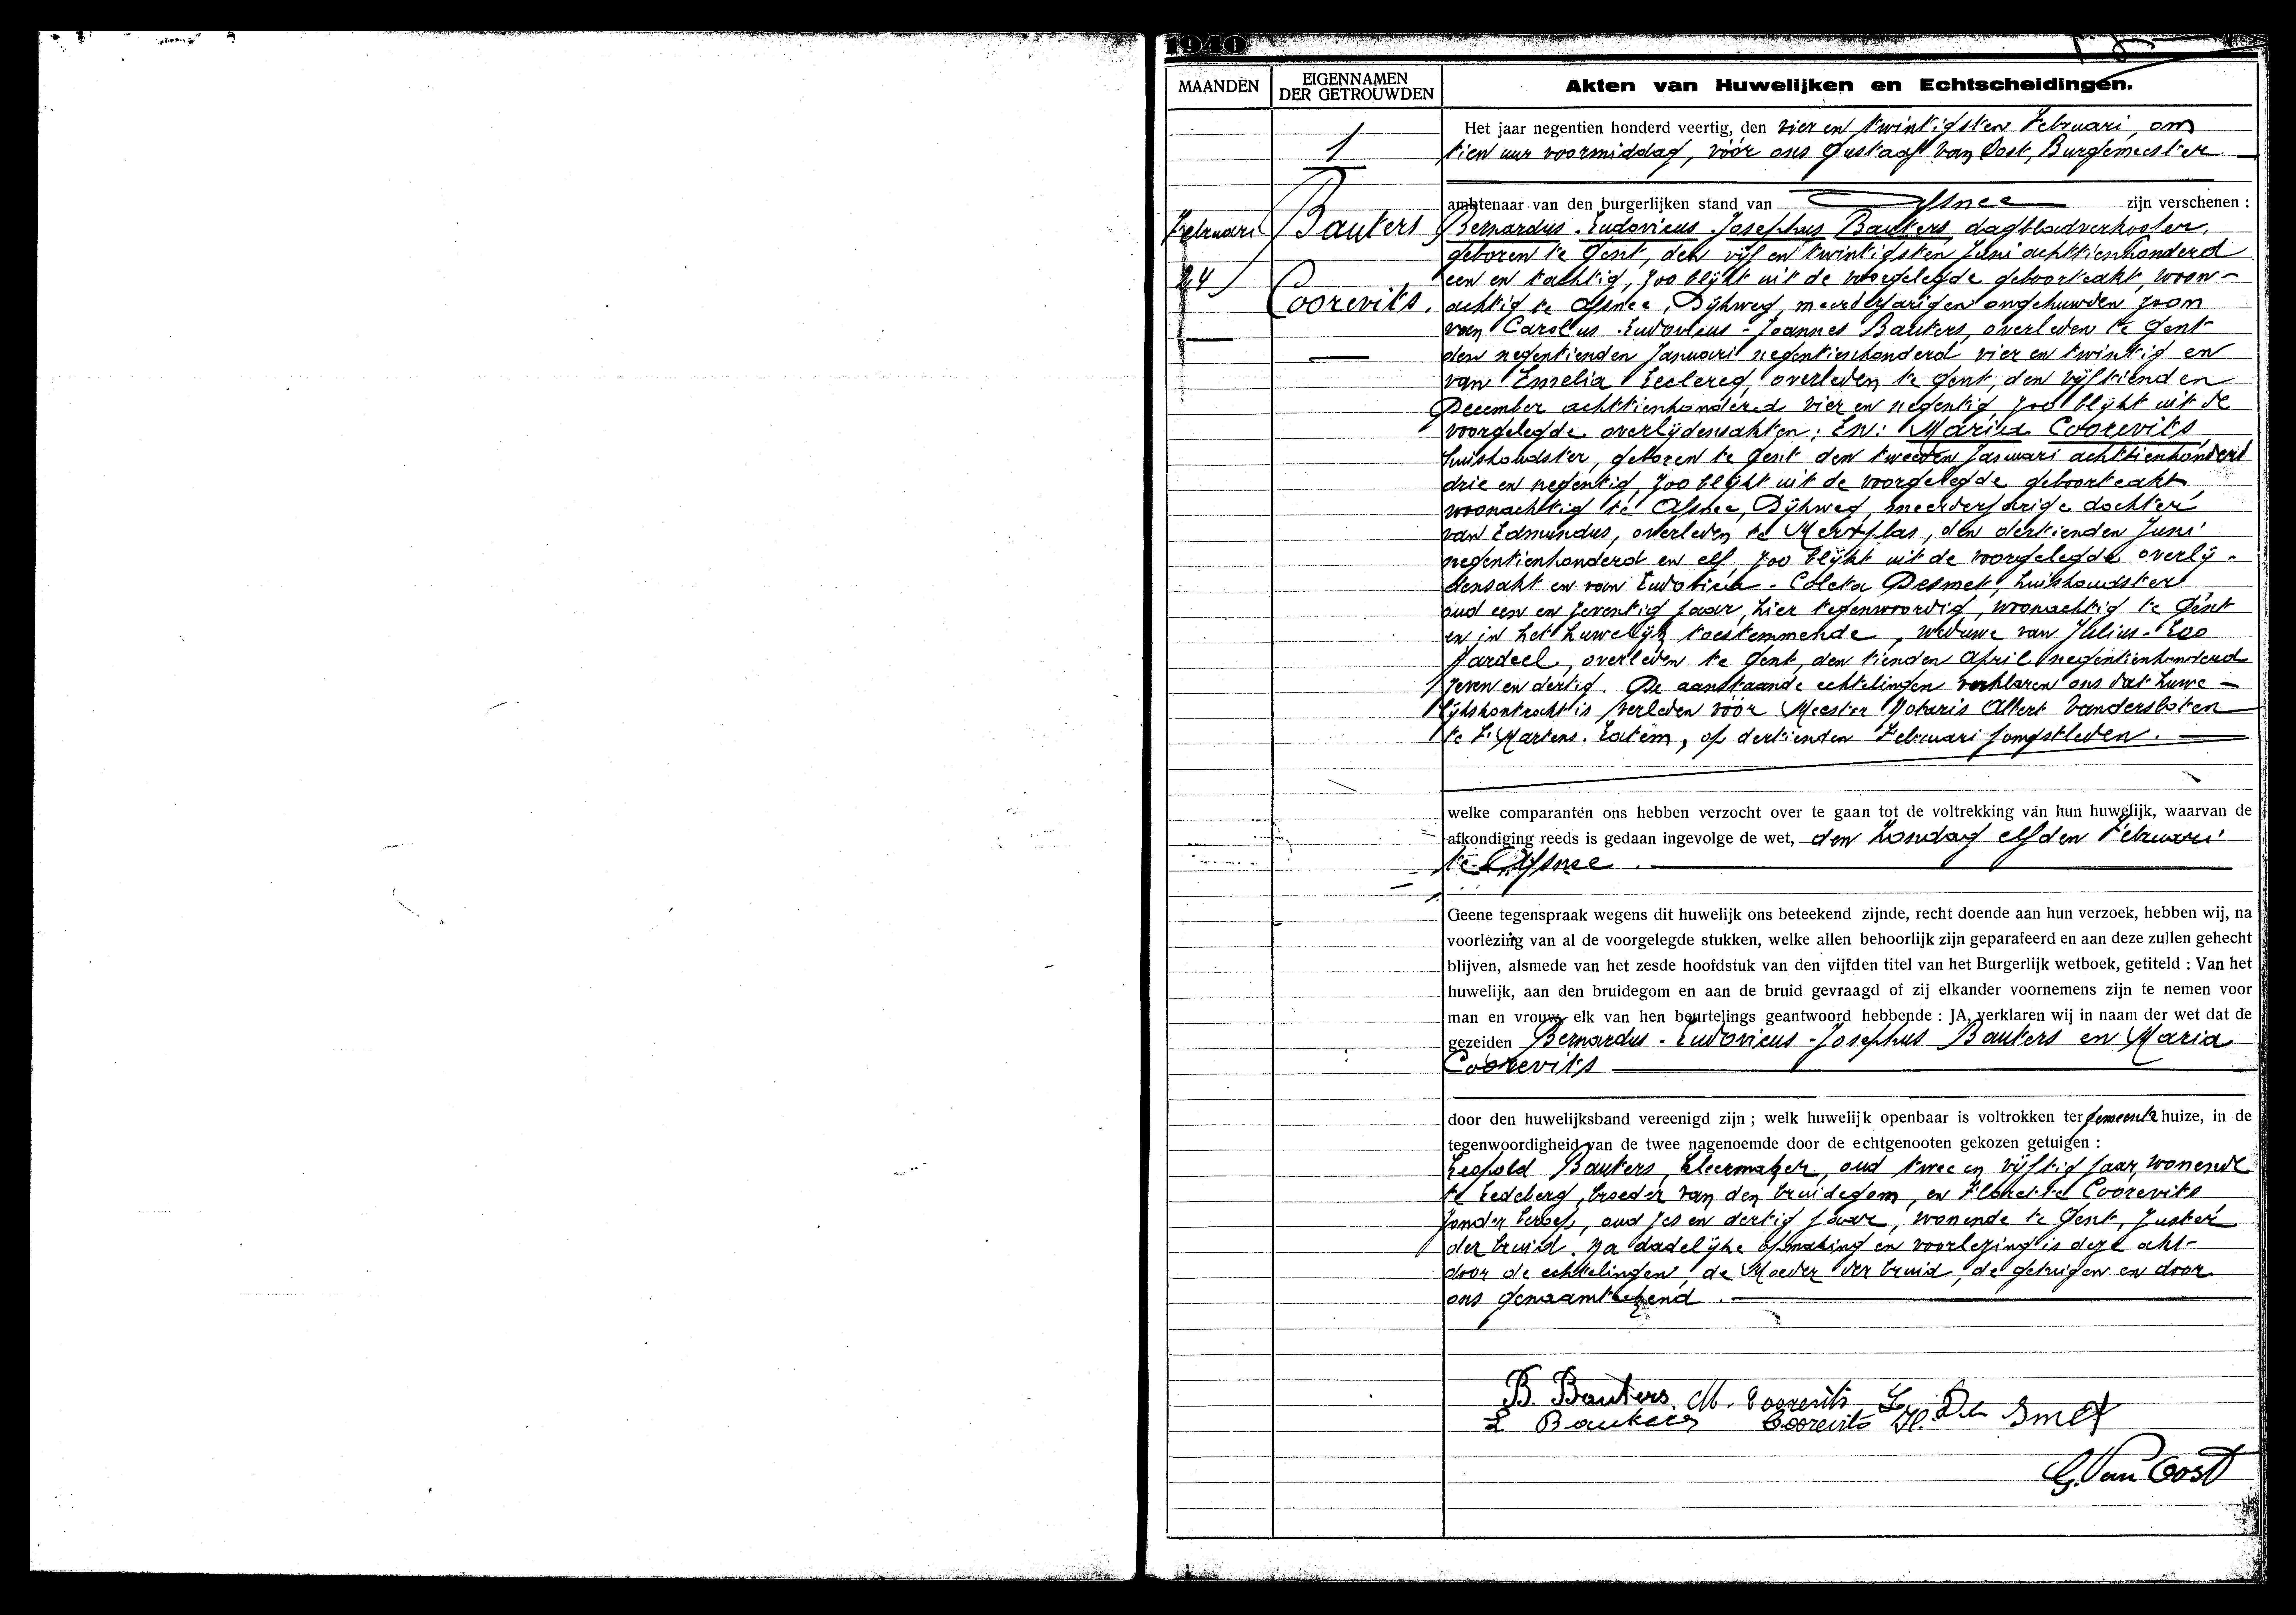 1940
MAANDEN
EIGENNAMEN
DER GETROUWDEN
Akten van Huwelijken en Echtscheidingen.
1
Februari
24
Bauters
Coorevits.
Het jaar negentien honderd veertig, den vier en twintigsten Februari, om
tien uur voormiddag, vóór ons Gustaaf Van Oost, Burgemeester
ambtenaar van den burgerlijken stand van Afsnee zijn verschenen :
Bernardus-Ludovicus-Josephus Bauters dagbladverkooper,
geboren te Gent, den vijf en twintigsten Juni achttienhonderd
een en tachtig, zoo blijkt uit de voorgelegde geboorteakt, woon-
achtig te Afsnee, Dijkweg, meerderjarigen ongehuwden zoon
van Carolus-Ludovicus-Joannes Bauters, overleden te Gent
den negentienden Januari negentienhonderd vier en twintig en
van Emelia Leclercq overleden te Gent, den vijftienden
December achttienhonderd vier en negentig, zoo blijkt uit de
voorgelegde overlijdensakten; En: Maria Coorevits,
huishoudster, geboren te Gent den tweeden Januari achttienhonderd
drie en negentig, zoo blijkt uit de voorgelegde geboorteakt,
woonachtig te Afsnee, Dijkweg, meerderjarige dochter
van Edmundus, overleden te Merxplas, den dertienden Juni
negentienhonderd en elf, zoo blijkt uit de voorgelegde overlij-
densakt en van Ludovica-Coleta Desmet, huishoudster,
oud een en zeventig jaar, hier tegenwoordig, woonachtig te Gent
en in het huwelijk toestemmende, weduwe van Julius-Leo
Jardeel, overleden te Gent, den tienden April negentienhonderd
zeven en dertig. De aanstaande echtelingen verklaren ons dat huwe-
lijkskontrakt is verleden vóór Meester Notaris Albert Vandersloten
te St Martens-Latem, op dertienden Februari jongstleden.
welke comparanten ons hebben verzocht over te gaan tot de voltrekking van hun huwelijk, waarvan de
afkondiging reeds is gedaan ingevolge de wet, den Zondag elfden Februari
te Afsnee.
Geene tegenspraak wegens dit huwelijk ons beteekend zijnde, recht doende aan hun verzoek, hebben wij, na
voorlezing van al de voorgelegde stukken, welke allen behoorlijk zijn geparafeerd en aan deze zullen gehecht
blijven, alsmede van het zesde hoofdstuk van den vijfden titel van het Burgerlijk wetboek, getiteld : Van het
huwelijk, aan den bruidegom en aan de bruid gevraagd of zij elkander voornemens zijn te nemen voor
man en vrouw, elk van hen beurtelings geantwoord hebbende : JA, verklaren wij in naam der wet dat de
gezeiden Bernardus-Ludovicus-Josephus Bauters en Maria
Coorevits
door den huwelijksband vereenigd zijn ; welk huwelijk openbaar is voltrokken ter gemeente huize, in de
tegenwoordigheid van de twee nagenoemde door de echtgenooten gekozen getuigen :
Leopold Bauters, kleermaker, oud twee en vijftig jaar, wonende
te Ledeberg, broeder van den bruidegom, en Florette Coorevits
zonder beroep, oud zes en dertig jaar, wonende te Gent, zuster
der bruid. Na dadelijke opmaking en voorlezing is deze akt
door de echtelingen, de Moeder der bruid, de getuigen en door
ons genaamtekend.
B. Bauters. M. Coorevits L. De Smet
L Bauters Coorevits Fl.
G. Van Oost